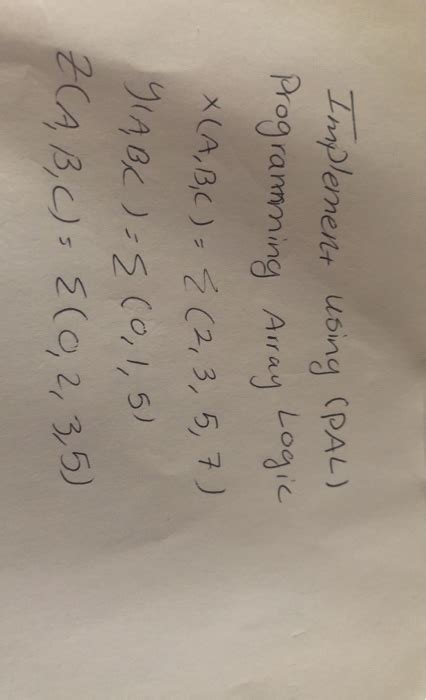 Implement using (PAL)
Programming Array Logic
x(A,B,C) = Σ (2, 3, 5, 7)
y(A,B,C) = Σ (0, 1, 5)
Z(A,B,C) = Σ (0, 2, 3, 5)